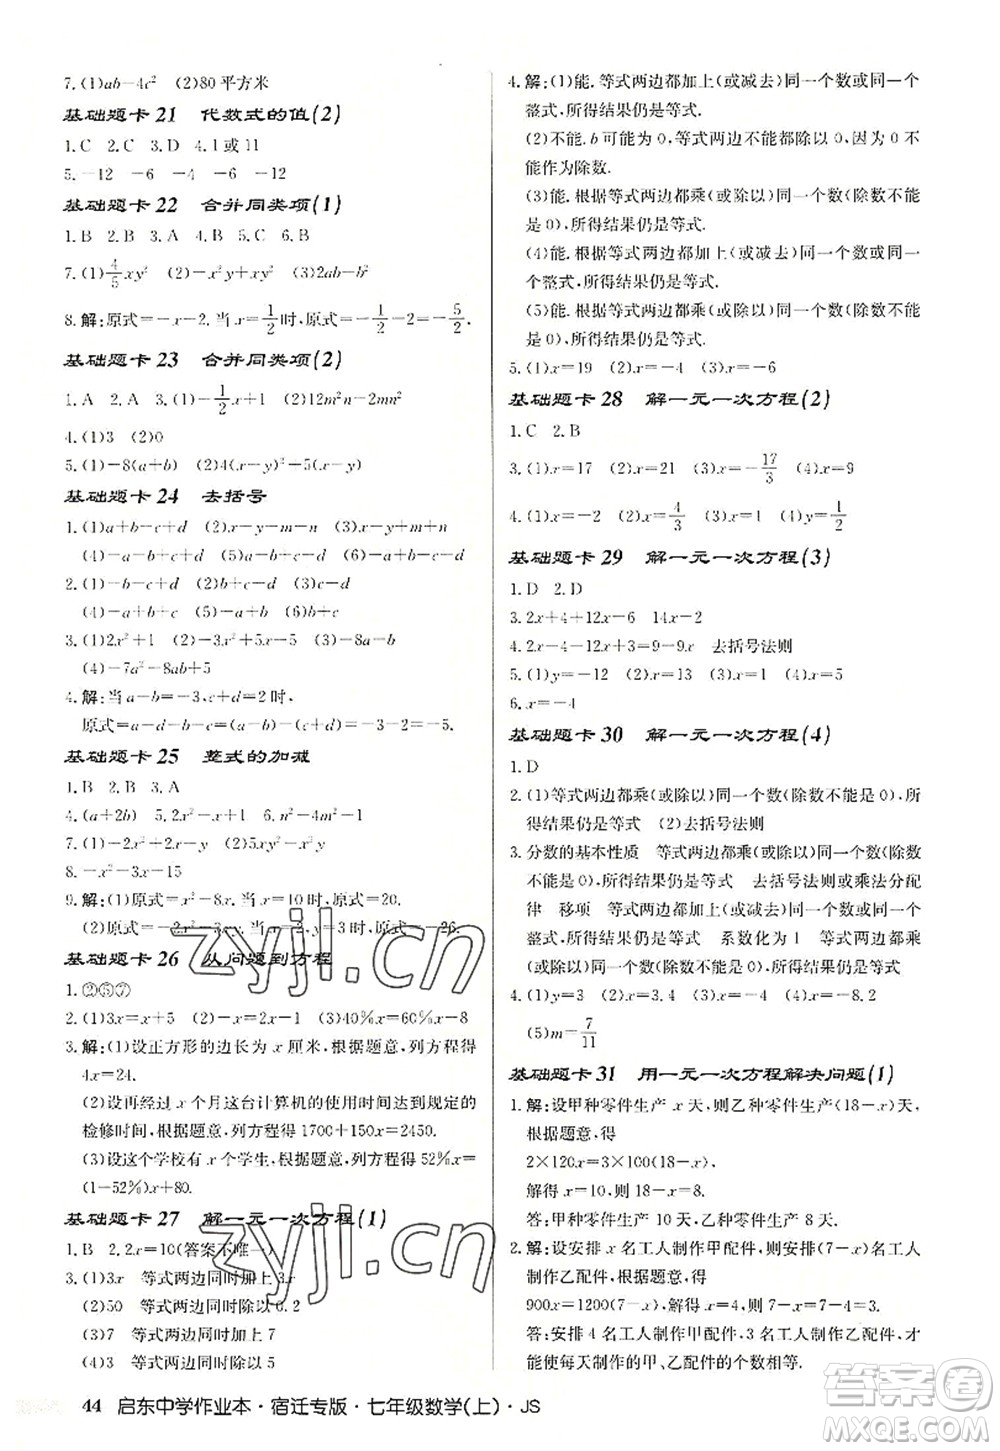 7. (1)ab－4c²　(2)80 平方米
基础题卡 21　代数式的值(2)
1. C　2. C　3. D　4. 1 或 11
5. －12　－6　－4　－6　－12
基础题卡 22　合并同类项(1)
1. B　2. A　3. B　4. D　5. C　6. B
7. (1)4/5 xy²　(2)－x²y－xy²　(3)2ab－b²
8. 解:原式＝－x－2. 当 x＝1/2 时,原式＝－1/2－2＝－5/2.
基础题卡 23　合并同类项(2)
1. A　2. A　3. (1)－1/2 x＋1　(2)12m²n－2mn²
4. (1)3　(2)0
5. (1)－8(a＋b)　(2)4(x－y)²－(x－y)
基础题卡 24　去括号
1. (1)a＋b－c＋d　(2)x－y－m－n　(3)x－y－m＋n
(4)－a－b＋c＋d　(5)a－b－c＋d　(6)－a＋b＋c－d
2. (1)－a＋b－c＋d　(2)a－b＋c－d　(3)a－b－c－d
(4)－a＋b－c＋d
3. (1)2x²＋1　(2)－3x²＋5x－5　(3)a＋b
(4)－7a²－8ab＋5
4. 解:当 a－b＝－3,c＋d＝2 时,
原式＝－a＋b－c－d＝(－a＋b)－(c＋d)＝3－2＝1.
基础题卡 25　整式的加减
1. B　2. B　3. A
4. (a＋2b)　5. 2x²－x－1　6. n²－4m²－1
7. (1)－x²＋2x－y　(2)－x²y
8. －x²－3x－15
9. 解:(1)原式＝9x²－8x. 当 x＝2 时,原式＝20.
基础题卡 26　从问题到方程
1. ②⑤⑦
2. (1)3x＝x＋5　(2)－x＝x－3　(3)40%x＝60%x－8
3. 解:(1)设正方形的边长为 x 厘米,根据题意,列方程得
4x＝24.
(2)设再经过 x 个月这台计算机的使用时间达到规定的
检修时间,根据题意,列方程得 1700＋150x＝2450.
(3)设这个学校有 x 个学生,根据题意,列方程得 52%x－
(1－52%)x＝80.
基础题卡 27　解一元一次方程(1)
1. B　2. 2x＝10(答案不唯一)
3. (1)3x　等式两边同时加上 3x
(2)50　等式两边同时除以 0.2
(3)7　等式两边同时加上 7
(4)3　等式两边同时除以－2
4. 解:(1)能. 等式两边都加上(或减去)同一个数或同一个
整式,所得结果仍是等式.
(2)不能. b 可能为 0,等式两边不能除以 0,因为 0 不
能作为除数.
(3)能. 根据等式两边都乘(或除以)同一个数(除数不能
是 0),所得结果仍是等式.
(4)能. 根据等式两边都加上(或减去)同一个数或同一个
整式,所得结果仍是等式.
(5)能. 根据等式两边都乘(或除以)同一个数(除数不能
是 0),所得结果仍是等式.
5. (1)x＝19　(2)x＝－4　(3)x＝－6
基础题卡 28　解一元一次方程(2)
1. C　2. B
3. (1)x＝2　(2)x＝4　(3)x＝－17/3　(4)x＝9
4. (1)x＝－2　(2)x＝4/3　(3)x＝－4　(4)y＝1/2
基础题卡 29　解一元一次方程(3)
1. D　2. D
3. 2x＋4＋12x－6　14x－2
4. 2x－4－12x＋3＝9－9x　去括号法则
5. (1)y＝－12　(2)x＝－15　(3)x＝7
6. x＝－4
基础题卡 30　解一元一次方程(4)
1. D
2. (1)等式两边都乘(或除以)同一个数(除数不能是 0),所
得结果仍是等式　(2)去括号法则
3. 分数的基本性质　等式两边都乘(或除以)同一个数(除数
不能是 0),所得结果仍是等式　去括号法则或乘法分配
律　移项　等式两边都加上(或减去)同一个数或同一个
整式,所得结果仍是等式　系数化为 1　等式两边都乘
(或除以)同一个数(除数不能是 0),所得结果仍是等式
4. (1)y＝3　(2)x＝3.4　(3)x＝1　(4)x＝－8.2
(5)m＝7/11
基础题卡 31　用一元一次方程解决问题(1)
1. 解:设甲种零件生产 x 天,则乙种零件生产(18－x)天,
根据题意,得
2×120x＝3×100(18－x).
解得 x＝10,所以 18－x＝8.
答:甲种零件生产 10 天,乙种零件生产 8 天.
2. 解:设安排 x 名工人制作甲配件,则安排(7－x)名工人
制作乙配件,根据题意,得
900x＝1200(7－x). 解得 x＝4.
答:安排 4 名工人制作甲配件,3 名工人制作乙配件,才能
使制作的甲、乙配件的个数相等.
44　启东中学作业本·宿迁专版·七年级数学(上)·JS
zyjl.cn
zyjl.cn
答案圈
MXQE.COM